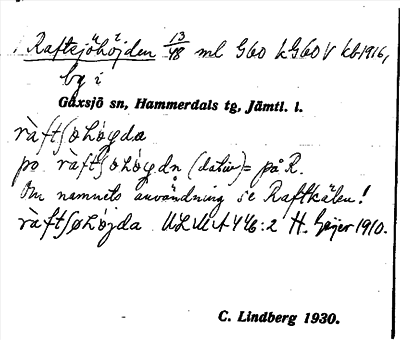 Raftsjöhöjden 13/48 ml G60 kG60V kb 1916,
by i
Gåxsjö sn, Hammerdals tg, Jämtl. l.
ràftʃøhø̀gda
po ràftʃøhø̀gdn (dativ) = på R.
Om namnets användning se Raftkälen!
ràftʃøhø̀jda ULMA 446:2 H. Geijer 1910.
C. Lindberg 1930.